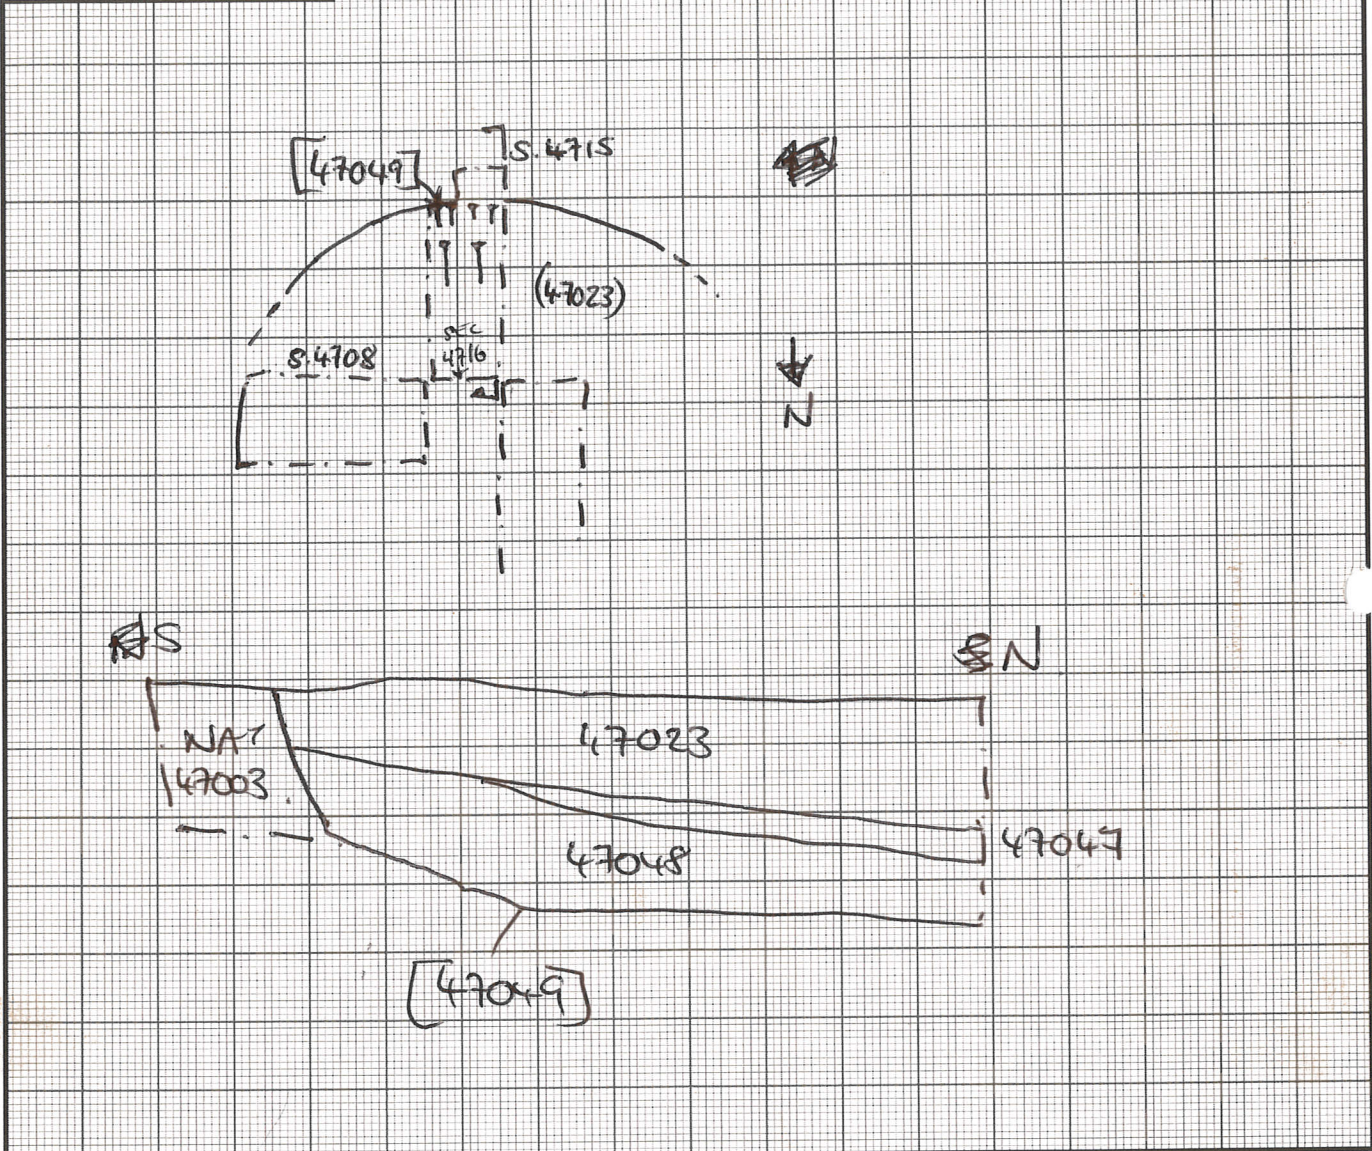 [47049]
S.4715
(47023)
S.4708
SEC
4716
N
S
N
NAT
47003
47023
47048
47047
[47049]